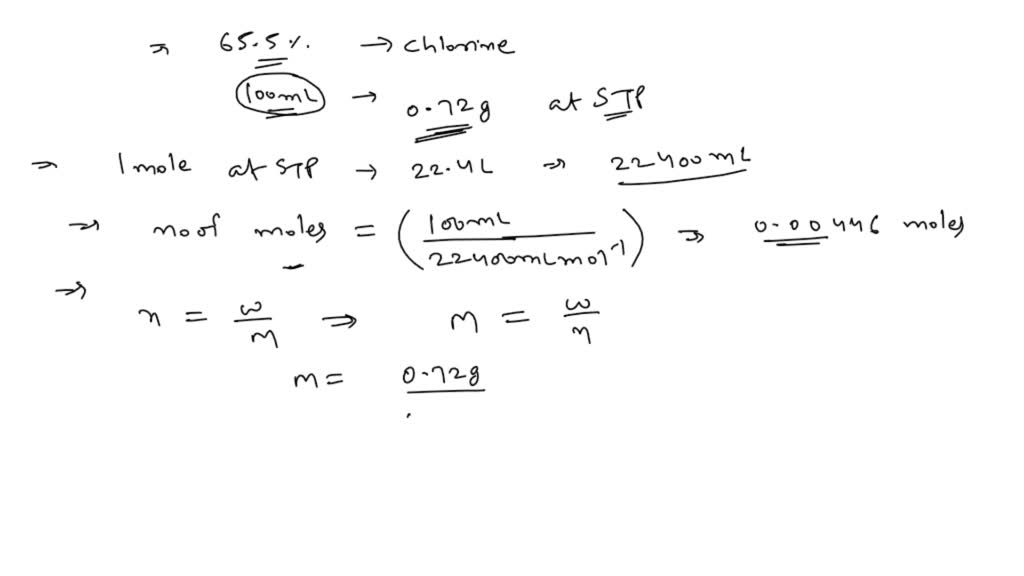 ⇒ 65.5%. → chlorine
100mL → 0.72g at STP
⇒ 1mole at STP → 22.4L ⇒ 22400mL
⇒ no of moles = (100mL / 22400mLmol⁻¹) ⇒ 0.00446 moles
⇒
n = w/M ⇒ M = w/n
m = 0.72g